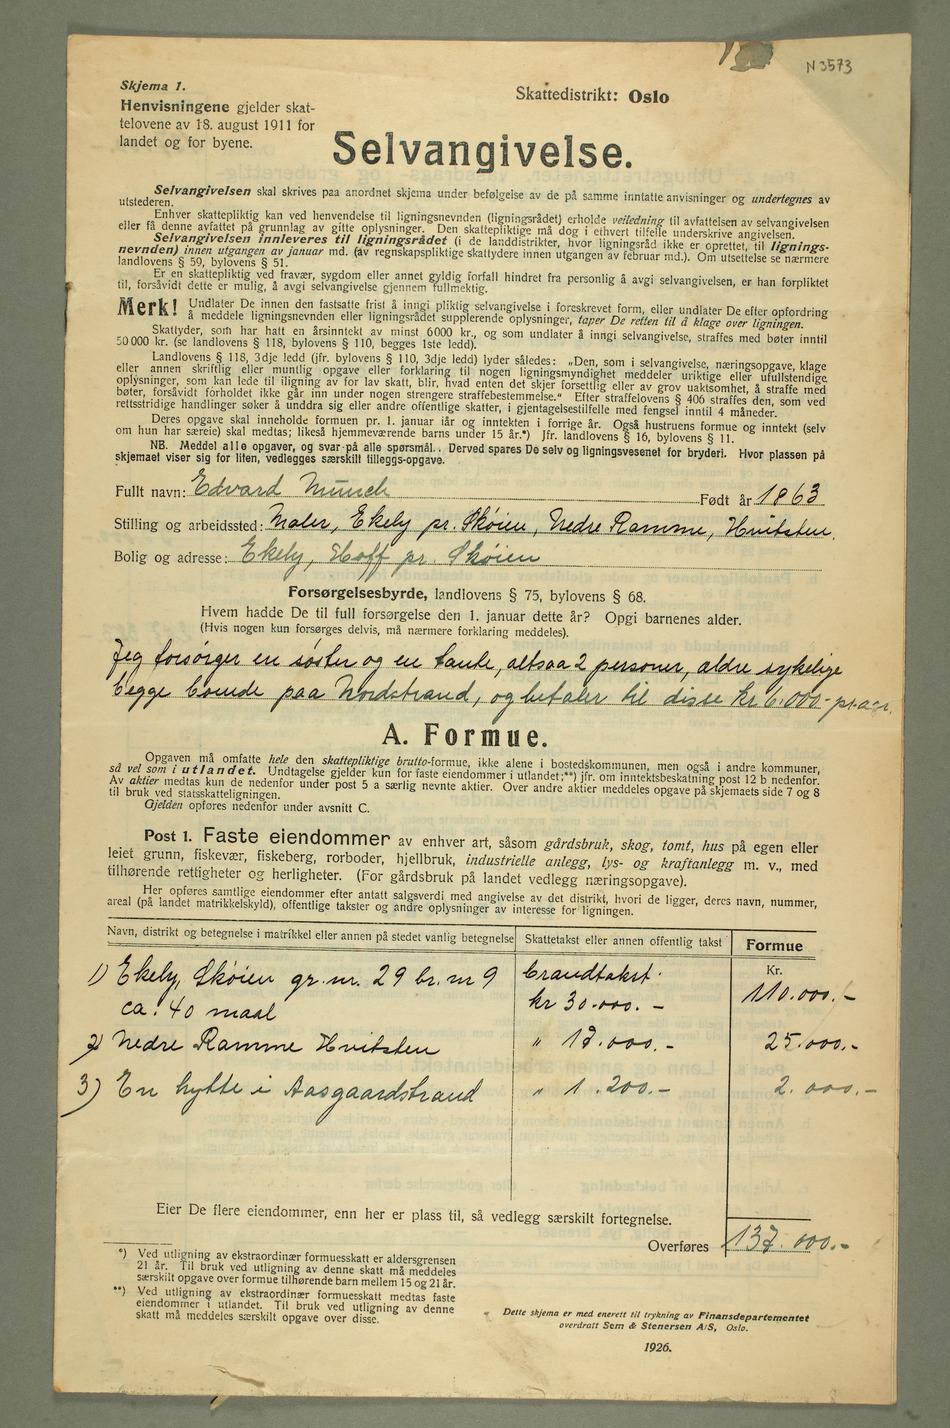 N 3573
Skjema 1.
Henvisningene gjelder skat-
telovene av 18. august 1911 for
landet og for byene.
Skattedistrikt: Oslo
Selvangivelse.
Selvangivelsen skal skrives paa anordnet skjema under befølgelse av de på samme inntatte anvisninger og undertegnes av
utstederen.
Enhver skattepliktig kan ved henvendelse til ligningsnevnden (ligningsrådet) erholde veiledning til avfattelsen av selvangivelsen
eller få denne avfattet på grunnlag av gitte oplysninger. Den skattepliktige må dog i ethvert tilfelle underskrive angivelsen.
Selvangivelsen innleveres til ligningsrådet (i de landdistrikter, hvor ligningsråd ikke er oprettet, til lignings-
nevnden) innen utgangen av januar md. (av regnskapspliktige skattydere innen utgangen av februar md.). Om utsettelse se nærmere
landlovens § 59, bylovens § 51.
Er en skattepliktig ved fravær, sygdom eller annet gyldig forfall hindret fra personlig å avgi selvangivelsen, er han forpliktet
til, forsåvidt dette er mulig, å avgi selvangivelse gjennem fullmektig.
Merk! Undlater De innen den fastsatte frist å inngi pliktig selvangivelse i foreskrevet form, eller undlater De efter opfordring
å meddele ligningsnevnden eller ligningsrådet supplerende oplysninger, taper De retten til å klage over ligningen.
Skattyder, som har hatt en årsinntekt av minst 6000 kr., og som undlater å inngi selvangivelse, straffes med bøter inntil
50 000 kr. (se landlovens § 118, bylovens § 110, begges 1ste ledd).
Landlovens § 118, 3dje ledd (jfr. bylovens § 110, 3dje ledd) lyder således: „Den, som i selvangivelse, næringsopgave, klage
eller annen skriftlig eller muntlig opgave eller forklaring til nogen ligningsmyndighet meddeler uriktige eller ufullstendige
oplysninger, som kan lede til iligning av for lav skatt, blir, hvad enten det skjer forsettlig eller av grov uaktsomhet, å straffe med
bøter, forsåvidt forholdet ikke går inn under nogen strengere straffebestemmelse.“ Efter straffelovens § 406 straffes den, som ved
rettsstridige handlinger søker å unddra sig eller andre offentlige skatter, i gjentagelsestilfelle med fengsel inntil 4 måneder.
Deres opgave skal inneholde formuen pr. 1. januar iår og inntekten i forrige år. Også hustruens formue og inntekt (selv
om hun har særeie) skal medtas; likeså hjemmeværende barns under 15 år.*) Jfr. landlovens § 16, bylovens § 11.
NB. Meddel alle opgaver, og svar på alle spørsmål. Derved spares De selv og ligningsvesenet for bryderi. Hvor plassen på
skjemaet viser sig for liten, vedlegges særskilt tilleggs-opgave.
Fullt navn: Edvard Munch Født år 1863
Stilling og arbeidssted: Maler, Ekely pr. Skøien, Nedre Ramme, Hvitsten.
Bolig og adresse: Ekely, Hoff pr. Skøien
Forsørgelsesbyrde, landlovens § 75, bylovens § 68.
Hvem hadde De til full forsørgelse den 1. januar dette år? Opgi barnenes alder.
(Hvis nogen kun forsørges delvis, må nærmere forklaring meddeles).
Jeg forsørger en søster og en tante, altsaa 2 personer, ældre sykelige
begge boende paa Nordstrand, og betaler til disse kr 6.000.- pr. aar.
A. Formue.
Opgaven må omfatte hele den skattepliktige brutto-formue, ikke alene i bostedskommunen, men også i andre kommuner,
så vel som i utlandet. Undtagelse gjelder kun for faste eiendommer i utlandet;**) jfr. om inntektsbeskatning post 12 b nedenfor.
Av aktier medtas kun de nedenfor under post 5 a særlig nevnte aktier. Over andre aktier meddeles opgave på skjemaets side 7 og 8
til bruk ved statsskatteligningen.
Gjelden opføres nedenfor under avsnitt C.
Post 1. Faste eiendommer av enhver art, såsom gårdsbruk, skog, tomt, hus på egen eller
leiet grunn, fiskevær, fiskeberg, rorboder, hjellbruk, industrielle anlegg, lys- og kraftanlegg m. v., med
tilhørende rettigheter og herligheter. (For gårdsbruk på landet vedlegg næringsopgave).
Her opføres samtlige eiendommer efter antatt salgsverdi med angivelse av det distrikt, hvori de ligger, deres navn, nummer,
areal (på landet matrikkelskyld), offentlige takster og andre oplysninger av interesse for ligningen.
Navn, distrikt og betegnelse i matrikkel eller annen på stedet vanlig betegnelse Skattetakst eller annen offentlig takst Formue
Kr.
1) Ekely, Skøien gr. nr. 29 br. nr 9 brandtakst.
ca. 40 maal kr 30.000.- 110.000.-
2) Nedre Ramme Hvitsten " 17.000.- 25.000.-
3) En hytte i Aasgaardstrand " 1.200.- 2.000.-
Eier De flere eiendommer, enn her er plass til, så vedlegg særskilt fortegnelse.
Overføres 137.000.-
*) Ved utligning av ekstraordinær formuesskatt er aldersgrensen
21 år. Til bruk ved utligning av denne skatt må meddeles
særskilt opgave over formue tilhørende barn mellem 15 og 21 år.
**) Ved utligning av ekstraordinær formuesskatt medtas faste
eiendommer i utlandet. Til bruk ved utligning av denne
skatt må meddeles særskilt opgave over disse.
Dette skjema er med enerett til trykning av Finansdepartementet
overdratt Sem & Stenersen A/S, Oslo.
1926.